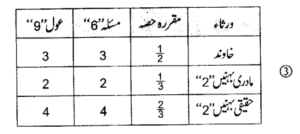 ورثاء مقررہ حصہ مسئلہ "6" عول "9"
خاوند 1/2 3 3
مادری بہنیں "2" 1/3 2 2
حقیقی بہنیں "2" 2/3 4 4
③